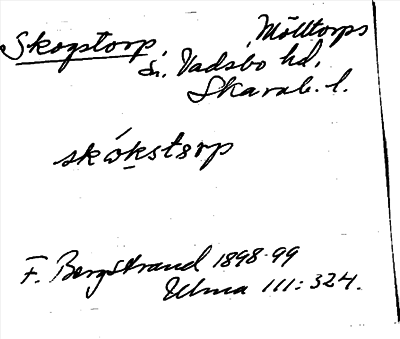 Skogstorp, Mölltorps
sn. Vadsbo hd,
Skarab. l.
skókstarp
F. Bergstrand 1898-99
Ulma 111:324.